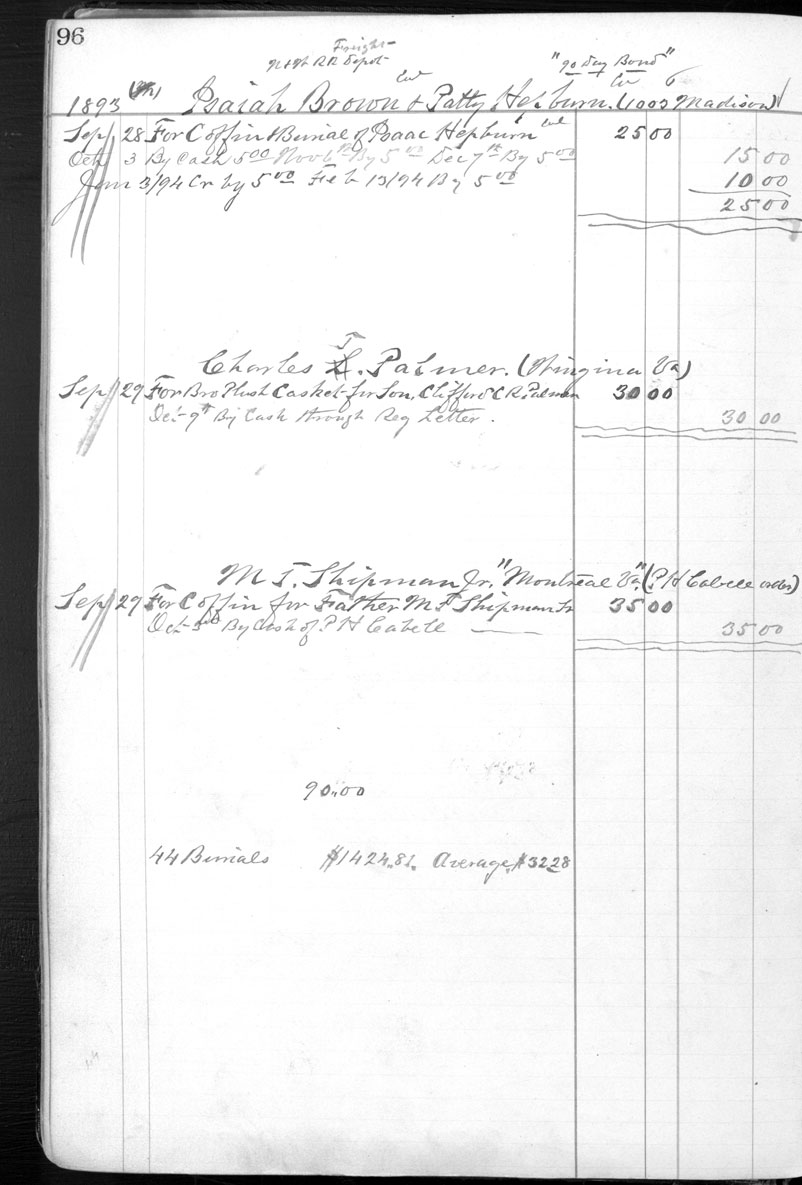 96
Freight
N & W RR Depot
"90 day Bond"
Col Col
1893 Isaiah Brown & Patty Hepburn. (1002 Madison)
Sep 28 For Coffin & Burial of Isaac Hepburn Col 25 00
Oct 3 By Cash 5.00 Nov 6th By 5.00 Dec 7th By 5.00 15 00
Jan 3/94 Cr by 5.00 Feb 13/94 By 5.00 10 00
25 00
Charles T. Palmer. (Wingina Va)
Sep 29 For Bro Plush Casket for Son, Clifford C R Palmer 30 00
Oct 9th By Cash through Reg Letter. 30 00
M F. Shipman Jr. "Montreal Va" (P H Cabell order)
Sep 29 For Coffin for Father M F Shipman Sr 35 00
Oct 3rd By Cash of P H Cabell 35 00
90.00
44 Burials $1424.81. Average $32 28